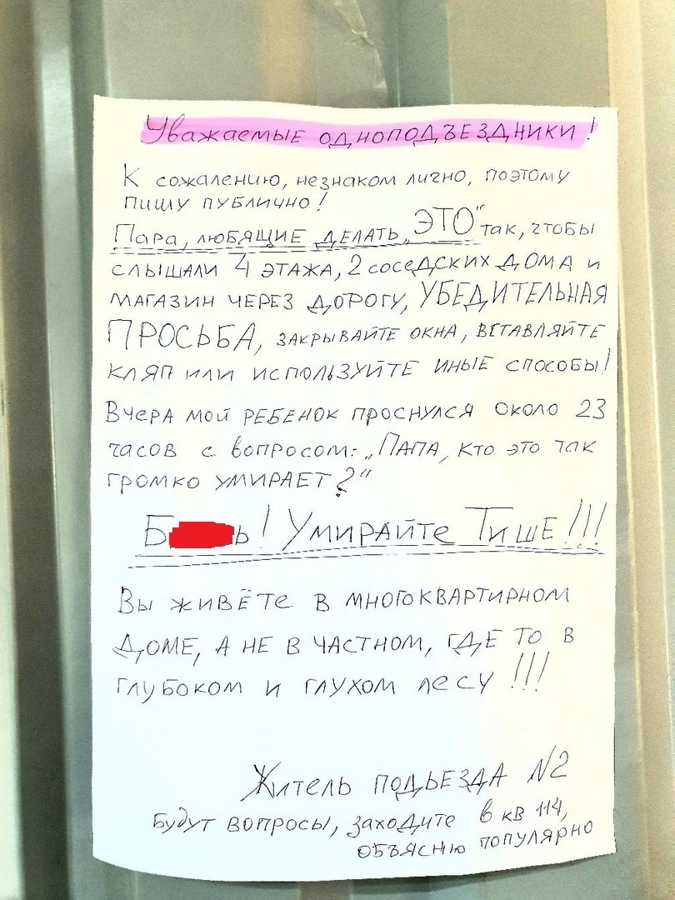 Уважаемые одноподъездники!
К сожалению, незнаком лично, поэтому
пишу публично!
Пара, любящие делать „ЭТО" так, чтобы
слышали 4 этажа, 2 соседских дома и
магазин через дорогу, УБЕДИТЕЛЬНАЯ
ПРОСЬБА, закрывайте окна, вставляйте
кляп или используйте иные способы!
Вчера мой ребенок проснулся около 23
часов с вопросом: „Папа, кто это так
громко умирает?"
Б ь! Умирайте Тише!!!
Вы живёте в многоквартирном
доме, а не в частном, где то в
глубоком и глухом лесу!!!
Житель подьезда N2
Будут вопросы, заходите в кв 114,
объясню популярно